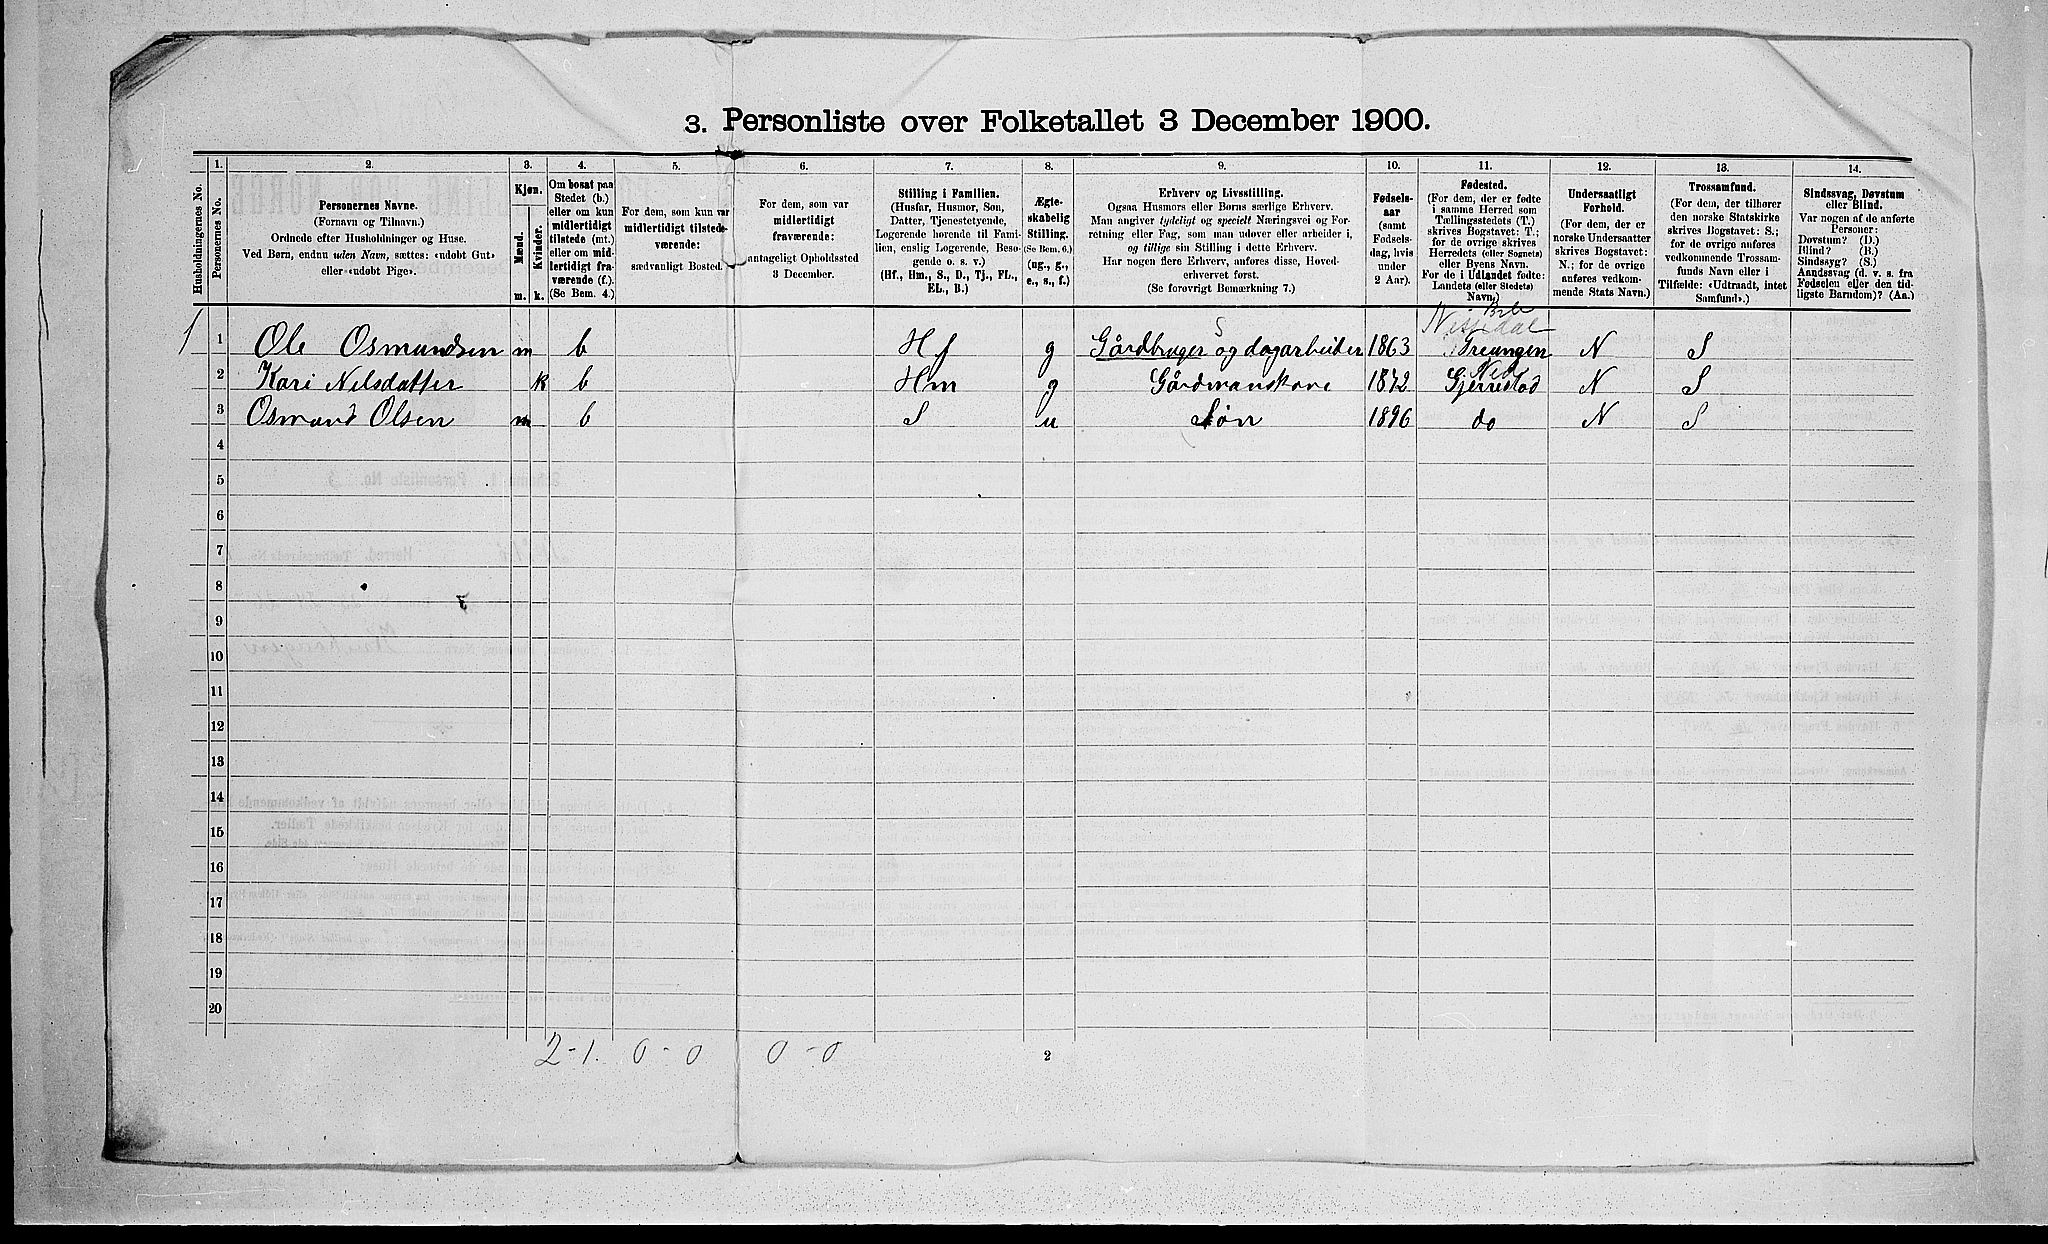 3. Personliste over Folketallet 3 December 1900.
Husholdningernes No.
1.
Personernes No.
2.
Personernes Navne.
(Fornavn og Tilnavn.)
Ordnede efter Husholdninger og Huse.
Ved Børn, endnu uden Navn, sættes: «udøbt Gut»
eller «udøbt Pige».
3.
Kjøn.
Mænd.
Kvinder.
m.
k.
4.
Om bosat paa
Stedet (b.)
eller om kun
midlertidigt
tilstede (mt.)
eller om mid-
lertidigt fra-
værende (f.)
(Se Bem. 4.)
5.
For dem, som kun var
midlertidigt tilstede-
værende:
sædvanligt Bosted.
6.
For dem, som var
midlertidigt
fraværende:
antageligt Opholdssted
3 December.
7.
Stilling i Familien.
(Husfar, Husmor, Søn,
Datter, Tjenestetyende,
Logerende hørende til Fami-
lien, enslig Logerende, Besø-
gende o. s. v.)
(Hf., Hm., S., D., Tj., FL.,
EL., B.)
8.
Ægte-
skabelig
Stilling.
(Se Bem. 6.)
(ug., g.,
e., s., f.)
9.
Erhverv og Livsstilling.
Ogsaa Husmors eller Børns særlige Erhverv.
Man angiver tydeligt og specielt Næringsvei og For-
retning eller Fag, som man udøver eller arbeider i,
og tillige sin Stilling i dette Erhverv.
Har nogen flere Erhverv, anføres disse, Hoved-
erhvervet først.
(Se forøvrigt Bemærkning 7.)
10.
Fødsels-
aar
(samt
Fødsels-
dag, hvis
under
2 Aar).
11.
Fødested.
(For dem, der er fødte
i samme Herred som
Tællingsstedets (T.)
skrives Bogstavet: T.;
for de øvrige skrives
Herredets (eller Sognets)
eller Byens Navn.
For de i Udlandet fødte:
Landets (eller Stedets)
Navn.)
12.
Undersaatligt
Forhold.
(For dem, der er
norske Undersaatter
skrives Bogstavet:
N.; for de øvrige
anføres vedkom-
mende Stats Navn.)
13.
Trossamfund.
(For dem, der tilhører
den norske Statskirke
skrives Bogstavet: S.;
for de øvrige anføres
vedkommende Trossam-
funds Navn eller i
Tilfælde: «Udtraadt, intet
Samfund».)
14.
Sindssvag, Døvstum
eller Blind.
Var nogen af de anførte
Personer:
Døvstum? (D.)
Blind? (B.)
Sindssyg? (S.)
Aandssvag (d. v. s. fra
Fødselen eller den tid-
ligste Barndom)? (Aa.)
Nissedal
1 1 Ole Osmundsen m b Hf g Gårdbruger og dagarbeider 1863 Treungen N S
2 Kari Nilsdatter k b Hm g Gårdmanskone 1872 Gjerrestad N S
3 Osmund Olsen m b S u Søn 1896 do N S
4
5
6
7
8
9
10
11
12
13
14
15
16
17
18
19
20
2-1. 0-0 0-0
2